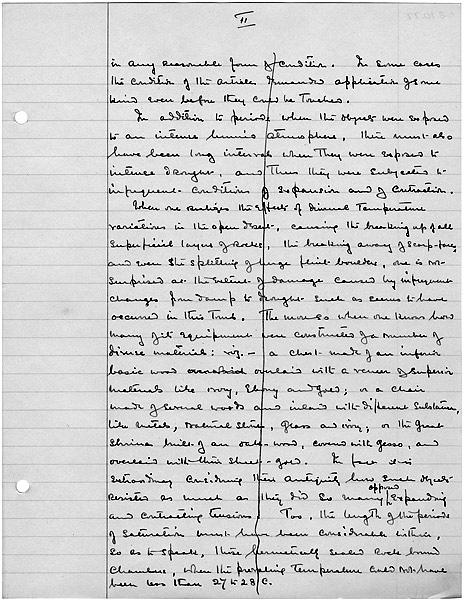 11
in any reasonable form of condition. In some cases
the condition of the article demanded application of some
kind even before they could be touched.
In addition to periods when the objects were exposed
to an intense humid atmosphere, there must also
have been long intervals when they were exposed to
intense drought, and thus they were subjected to
infrequent conditions of expansion and of contraction.
When one realizes the effects of diurnal temperature
variations in the open desert, causing the breaking up of all
superficial layers of rocks, the breaking away of scarp-faces,
and even the splitting of huge flint-boulders, one is not
surprised at the extent of damage caused by infrequent
changes from damp to drought such as seems to have
occurred in this Tomb. The more so when one knows how
many of its equipment were constructed of a number of
diverse materials: viz. — a chest made of an inferior
basic wood overlaid with a veneer of superior
materials like ivory, ebony and gold; or a chair
made of several woods and inlaid with different substances,
like metals, natural stones, glass and ivory; or the great
shrines built of an oak-wood, covered with gesso, and
overlaid with thin sheet-gold. In fact it is
extraordinary considering their antiquity how such objects
resisted as much as they did so many opposed expanding
and contracting tensions. Too, the length of the periods
of saturation must have been considerable within,
so as to speak, these hermetically sealed rock bound
chambers, when the prevailing temperature could not have
been less than 27 to 28 C.